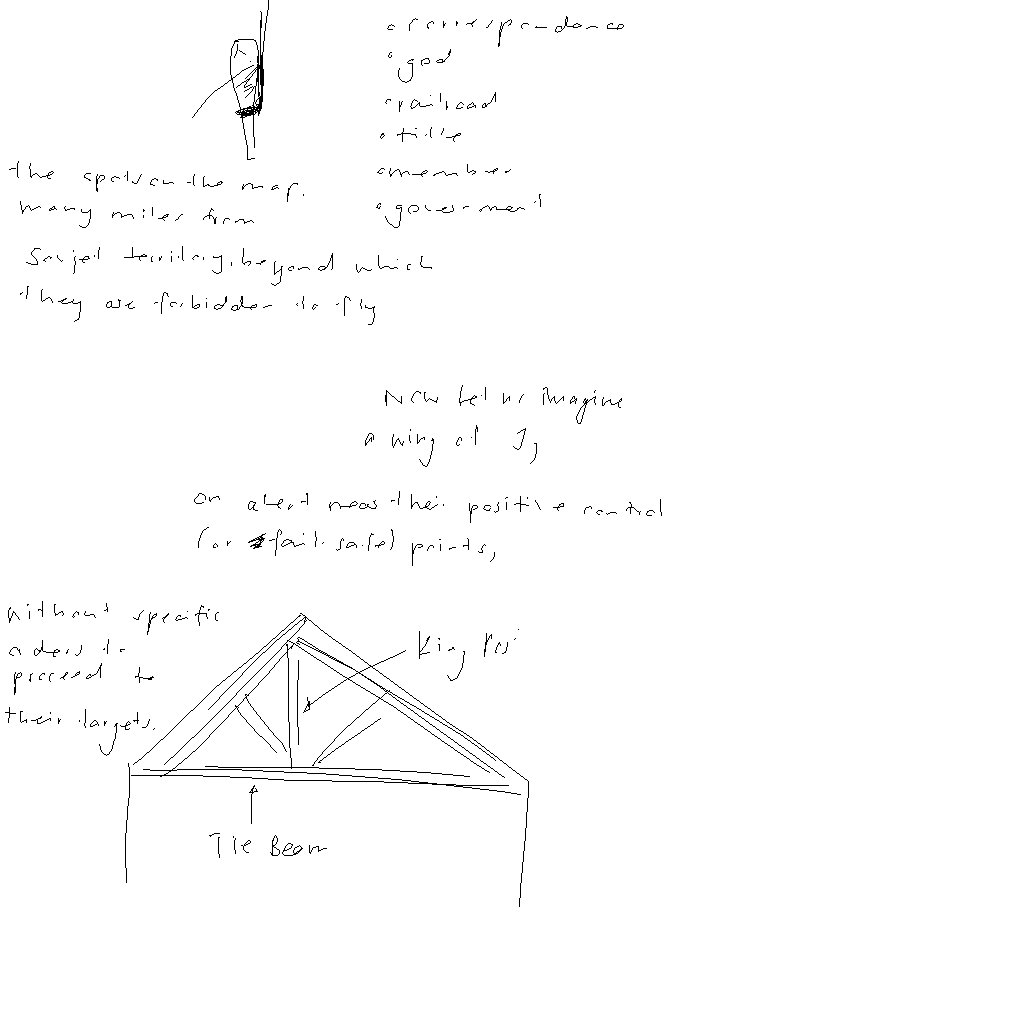 correspondance
god
railroad
title
member
government
the spots on the map.
many miles from
Soviet territory, beyond which
they are forbidden to fly
Now let us imagine
a wing of
on alert near their positive control
(or fail-safe) points,
without specific
orders to
proceed to
their targets.
King Pos
Tie Beam